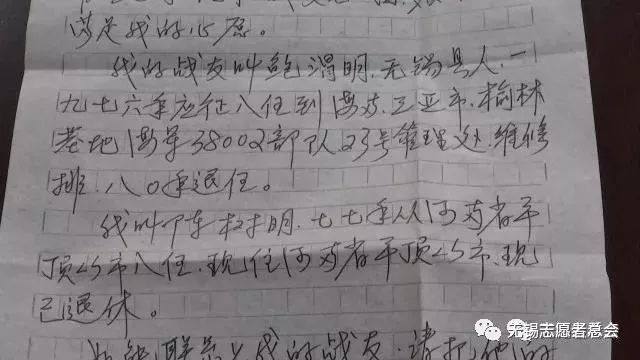 满足我的心愿。
我的战友叫鲍渭明,无锡县人,一
九七六年应征入伍到海南三亚市,榆林
基地海军38002部队23号管理处,维修
排,八〇年退伍。
我叫陈松明,七七年从河南省平
顶山市入伍,现住河南省平顶山市,现
已退休。
如能联系上我的战友,请把他的
无锡志愿者总会